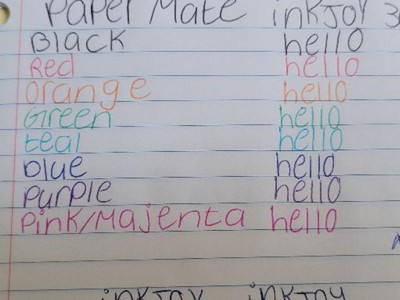 Paper Mate inkJoy 3
Black hello
Red hello
Orange hello
Green hello
teal hello
blue hello
purple hello
Pink/Majenta hello
inkJoy inkJoy